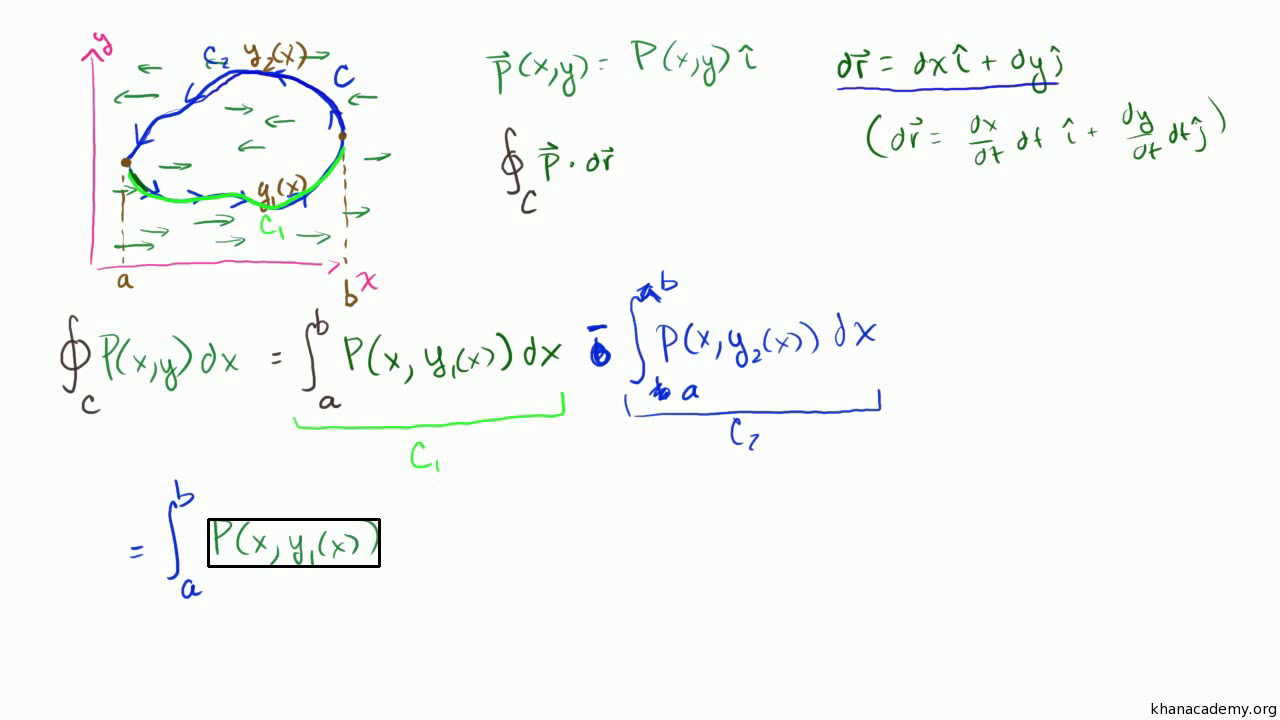 y
C₂ y₂(x)
C
y₁(x)
C₁
a
b
x
P⃗(x,y) = P(x,y) î
dr⃗ = dx î + dy ĵ
(dr⃗ = dx/dt dt î + dy/dt dt ĵ)
∮_C P⃗ · dr⃗
∮_C P(x,y) dx = ∫_a^b P(x, y₁(x)) dx - ∫_a^b P(x, y₂(x)) dx
C₁
C₂
= ∫_a^b P(x, y₁(x))
khanacademy.org